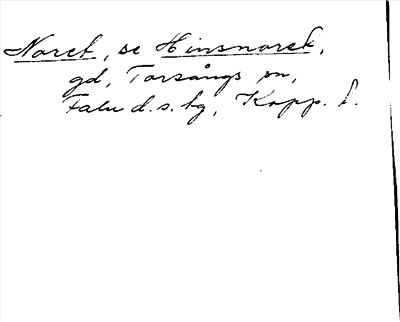 Noret, se Hinsnoret,
gd, Torsångs sn,
Falu d.s. hg, Kopp. l.